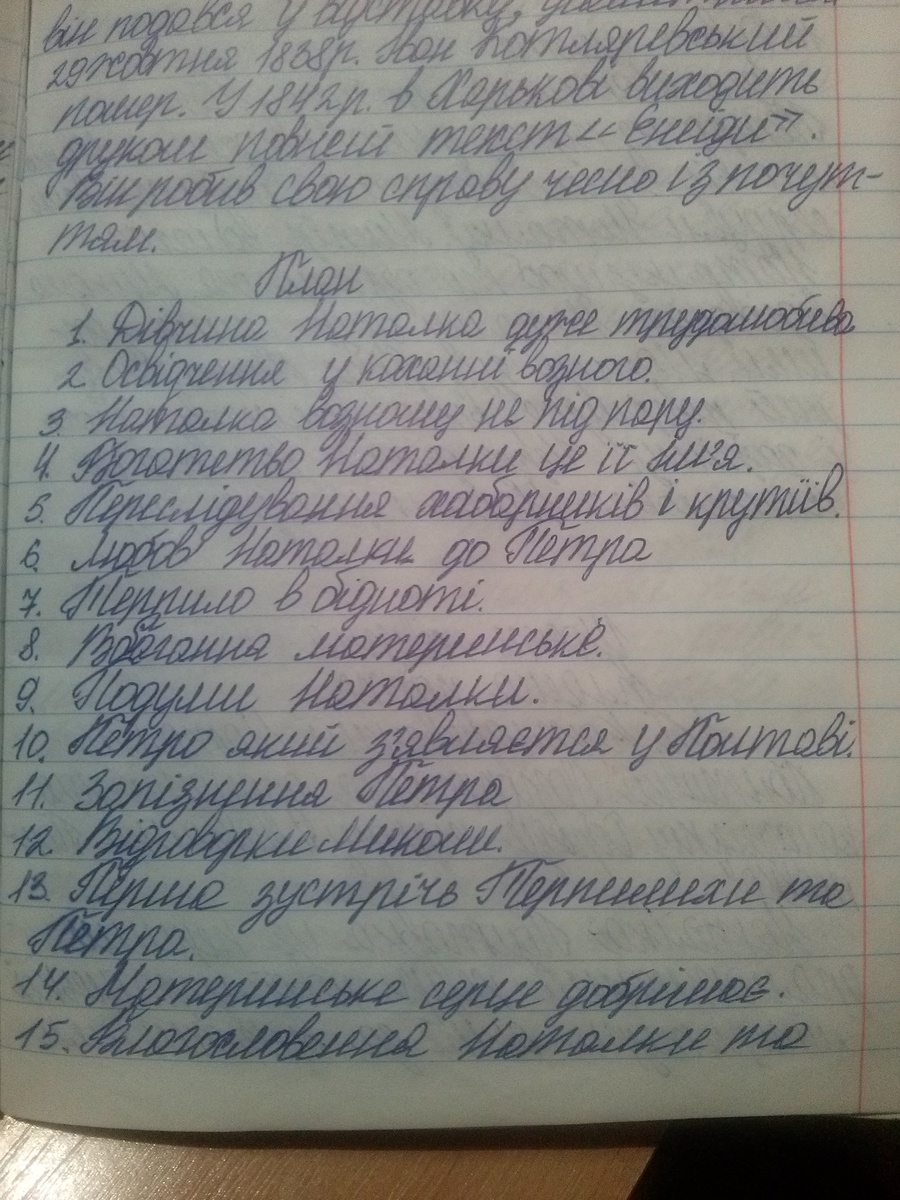 він подався у відставку,
29 жовтня 1838р. Іван Котляревський
помер. У 1842р. в Харькові виходить
друком повний текст «Енеїди».
Він робив свою справу чесно і з почут-
тям.
План
1. Дівчина Наталка дуже трудолюбива
2. Освідчення у коханні возного.
3. Наталка возному не під пару.
4. Богатство Наталки це її ім'я.
5. Переслідування хабарників і крутіїв.
6. Любов Наталки до Петра
7. Терпило в бідноті.
8. Вбогання материнське.
9. Подуми Наталки.
10. Петро який з'является у Полтаві.
11. Запізнення Петра
12. Відговорки Миколи.
13. Перша зустріч Терпилихи та
Петра.
14. Материнське серце добрішає.
15. Благословення Наталки та